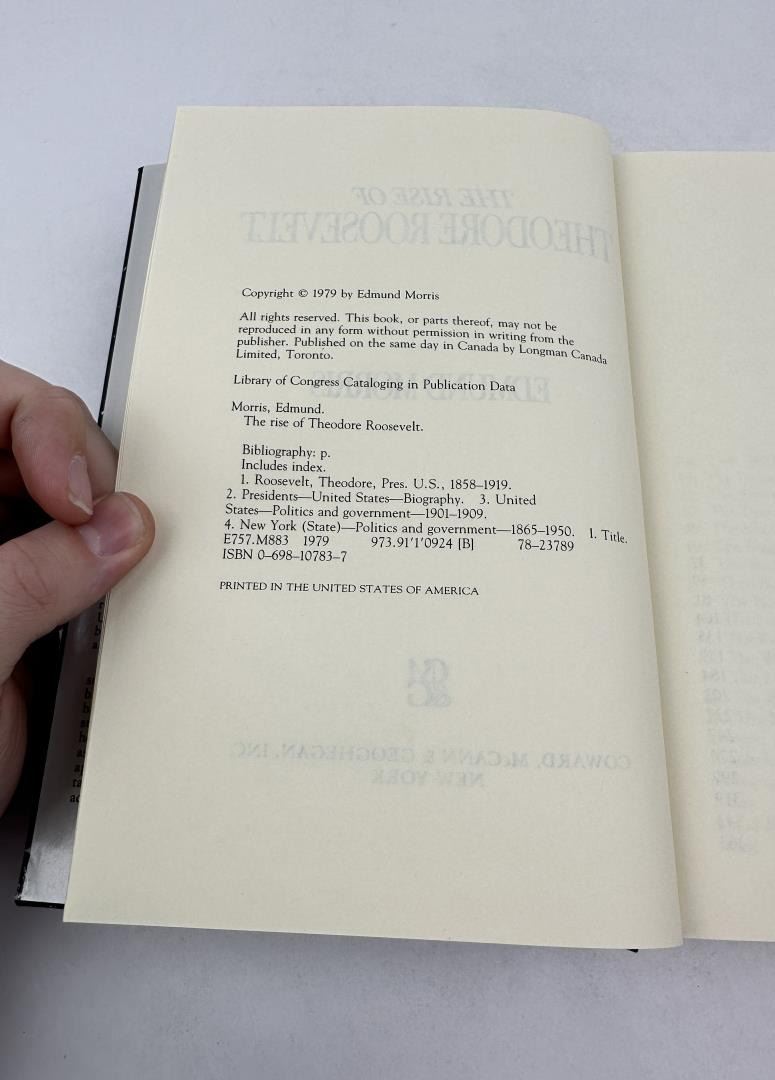 THE RISE OF
THEODORE ROOSEVELT
Copyright © 1979 by Edmund Morris
All rights reserved. This book, or parts thereof, may not be
reproduced in any form without permission in writing from the
publisher. Published on the same day in Canada by Longman Canada
Limited, Toronto.
EDMUND MORRIS
Library of Congress Cataloging in Publication Data
Morris, Edmund.
The rise of Theodore Roosevelt.
Bibliography: p.
Includes index.
1. Roosevelt, Theodore, Pres. U.S., 1858–1919.
2. Presidents—United States—Biography. 3. United
States—Politics and government—1901–1909.
4. New York (State)—Politics and government—1865–1950. 1. Title.
E757.M883 1979 973.91'1'0924 [B] 78–23789
ISBN 0–698–10783–7
PRINTED IN THE UNITED STATES OF AMERICA
COWARD, McCANN & GEOGHEGAN, INC.
NEW YORK